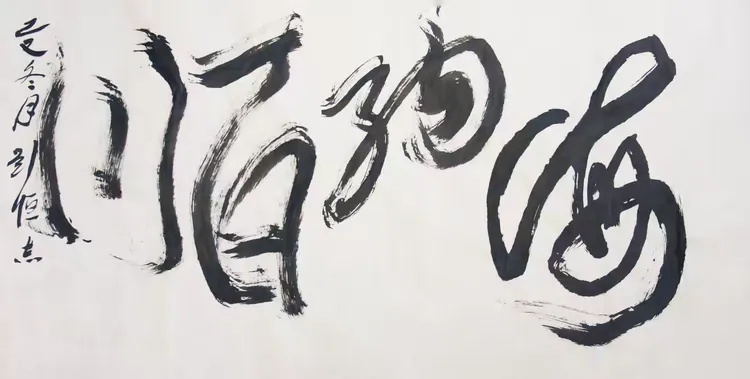 海纳百川
己亥冬月刘恒志